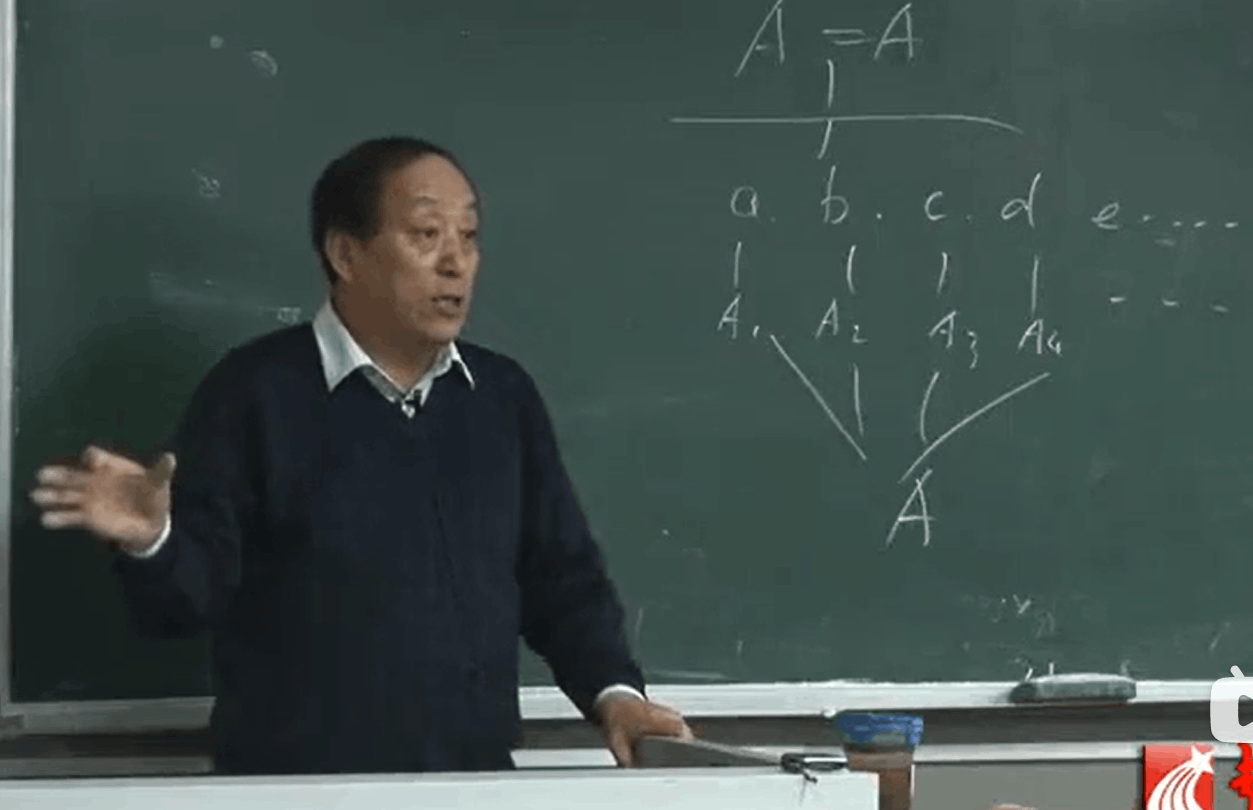 A = A
a. b. c. d e.....
A1 A2 A3 A4 - - -
A